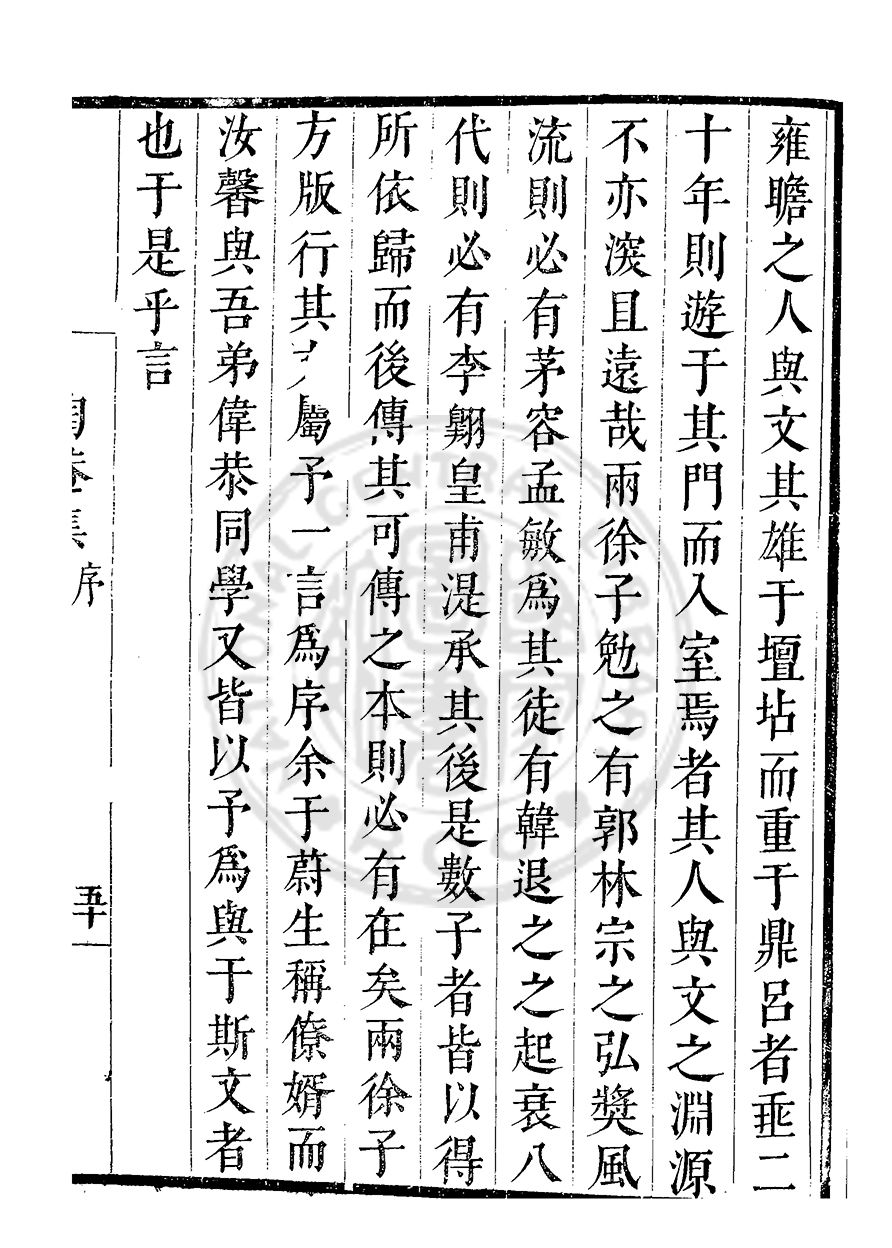 雍瞻之人與文其雄于壇坫而重于鼎呂者垂二
十年則遊于其門而入室焉者其人與文之淵源
不亦深且遠哉兩徐子勉之有郭林宗之弘獎風
流則必有茅容孟敏爲其徒有韓退之之起衰八
代則必有李翺皇甫湜承其後是數子者皆以得
所依歸而後傳其可傳之本則必有在矣兩徐子
方版行其屬予一言爲序余于蔚生稱僚婿而
汝馨與吾弟偉恭同學又皆以予爲與于斯文者
也于是乎言
菴集 序
五十